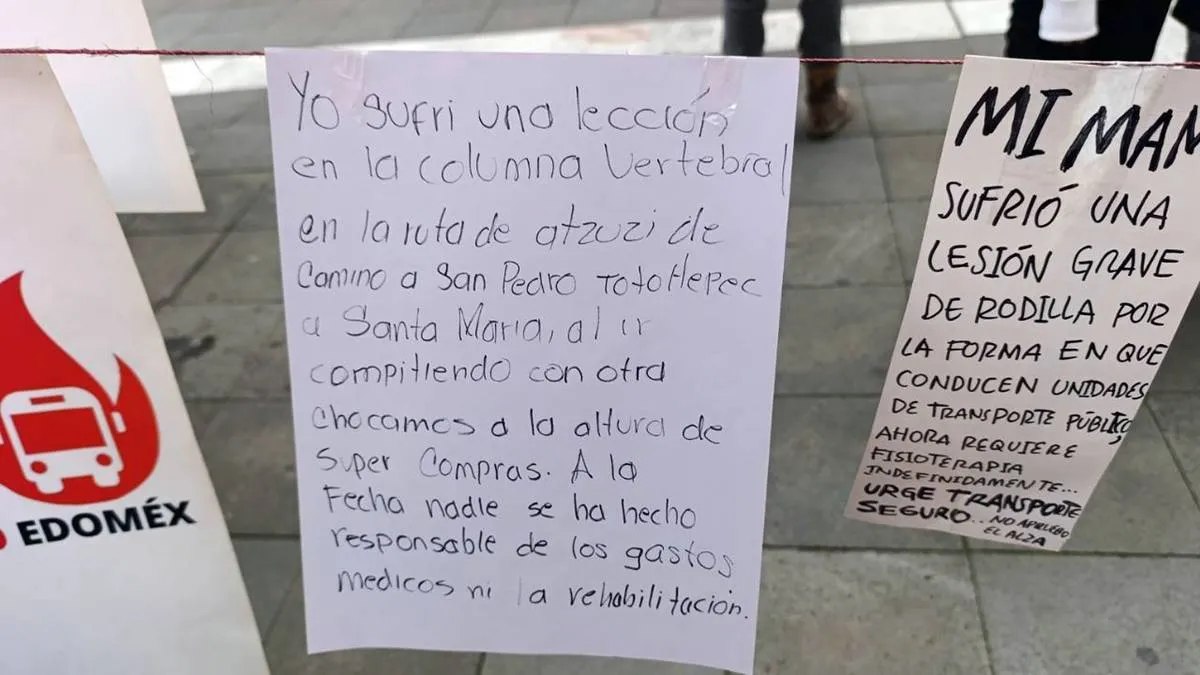 EDOMÉX
Yo sufri una lección
en la columna vertebral
en la ruta de atzuzi de
Camino a San Pedro Tototlepec
a Santa Maria, al ir
compitiendo con otra
chocamos a la altura de
Super Compras. A la
Fecha nadie se ha hecho
responsable de los gastos
medicos ni la rehabilitación.
MI MAM
SUFRIÓ UNA
LESIÓN GRAVE
DE RODILLA POR
LA FORMA EN QUE
CONDUCEN UNIDADES
DE TRANSPORTE PÚBLICO,
AHORA REQUIERE
FISIOTERAPIA
INDEFINIDAMENTE...
URGE TRANSPORTE
SEGURO... NO APRUEBO
EL ALZA